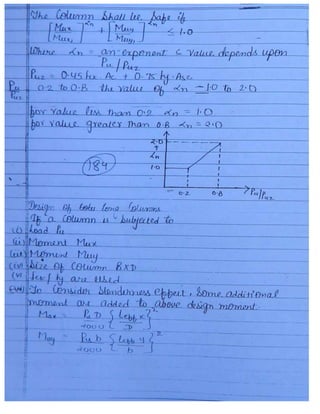 The Column Shall be Safe if
[Mux / Mux1]^αn + [Muy / Muy1]^αn ≤ 1.0
Where αn = an exponent & value depends upon
Pu/Puz
Puz = 0.45 fck Ac + 0.75 fy Asc
Pu/Puz 0.2 to 0.8 the value of αn - 1.0 to 2.0
for value less than 0.2 αn = 1.0
for value greater than 0.8 αn = 2.0
2.0
αn
1.0
184
0.2 0.8 Pu/Puz
Design of Long Columns
If a column is subjected to
(i) Load Pu
(ii) Moment Mux
(iii) Moment Muy
(iv) Size of Column B×D
(v) fck/fy are used
To Consider Slenderness effect, some additional
moment are added to above design moment.
Max = Pu D / 2000 {leff x / D}²
May = Pu b / 2000 {leff y / b}²